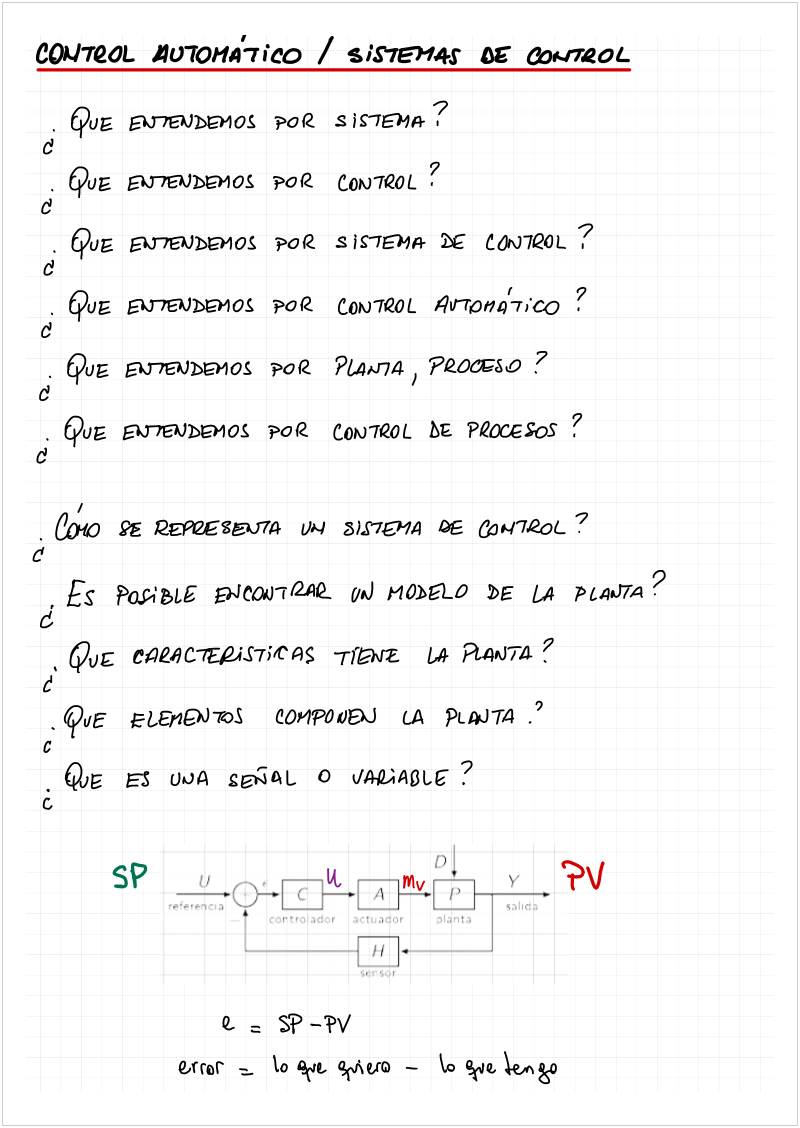 CONTROL AUTOMÁTICO / SISTEMAS DE CONTROL
¿QUE ENTENDEMOS POR SISTEMA?
¿QUE ENTENDEMOS POR CONTROL?
¿QUE ENTENDEMOS POR SISTEMA DE CONTROL?
¿QUE ENTENDEMOS POR CONTROL AUTOMÁTICO?
¿QUE ENTENDEMOS POR PLANTA, PROCESO?
¿QUE ENTENDEMOS POR CONTROL DE PROCESOS?
¿CÓMO SE REPRESENTA UN SISTEMA DE CONTROL?
¿ES POSIBLE ENCONTRAR UN MODELO DE LA PLANTA?
¿QUE CARACTERISTICAS TIENE LA PLANTA?
¿QUE ELEMENTOS COMPONEN LA PLANTA?
¿QUE ES UNA SEÑAL O VARIABLE?
D
SP U e C u A mv P Y PV
referencia controlador actuador planta salida
H
sensor
e = SP - PV
error = lo que quiero - lo que tengo